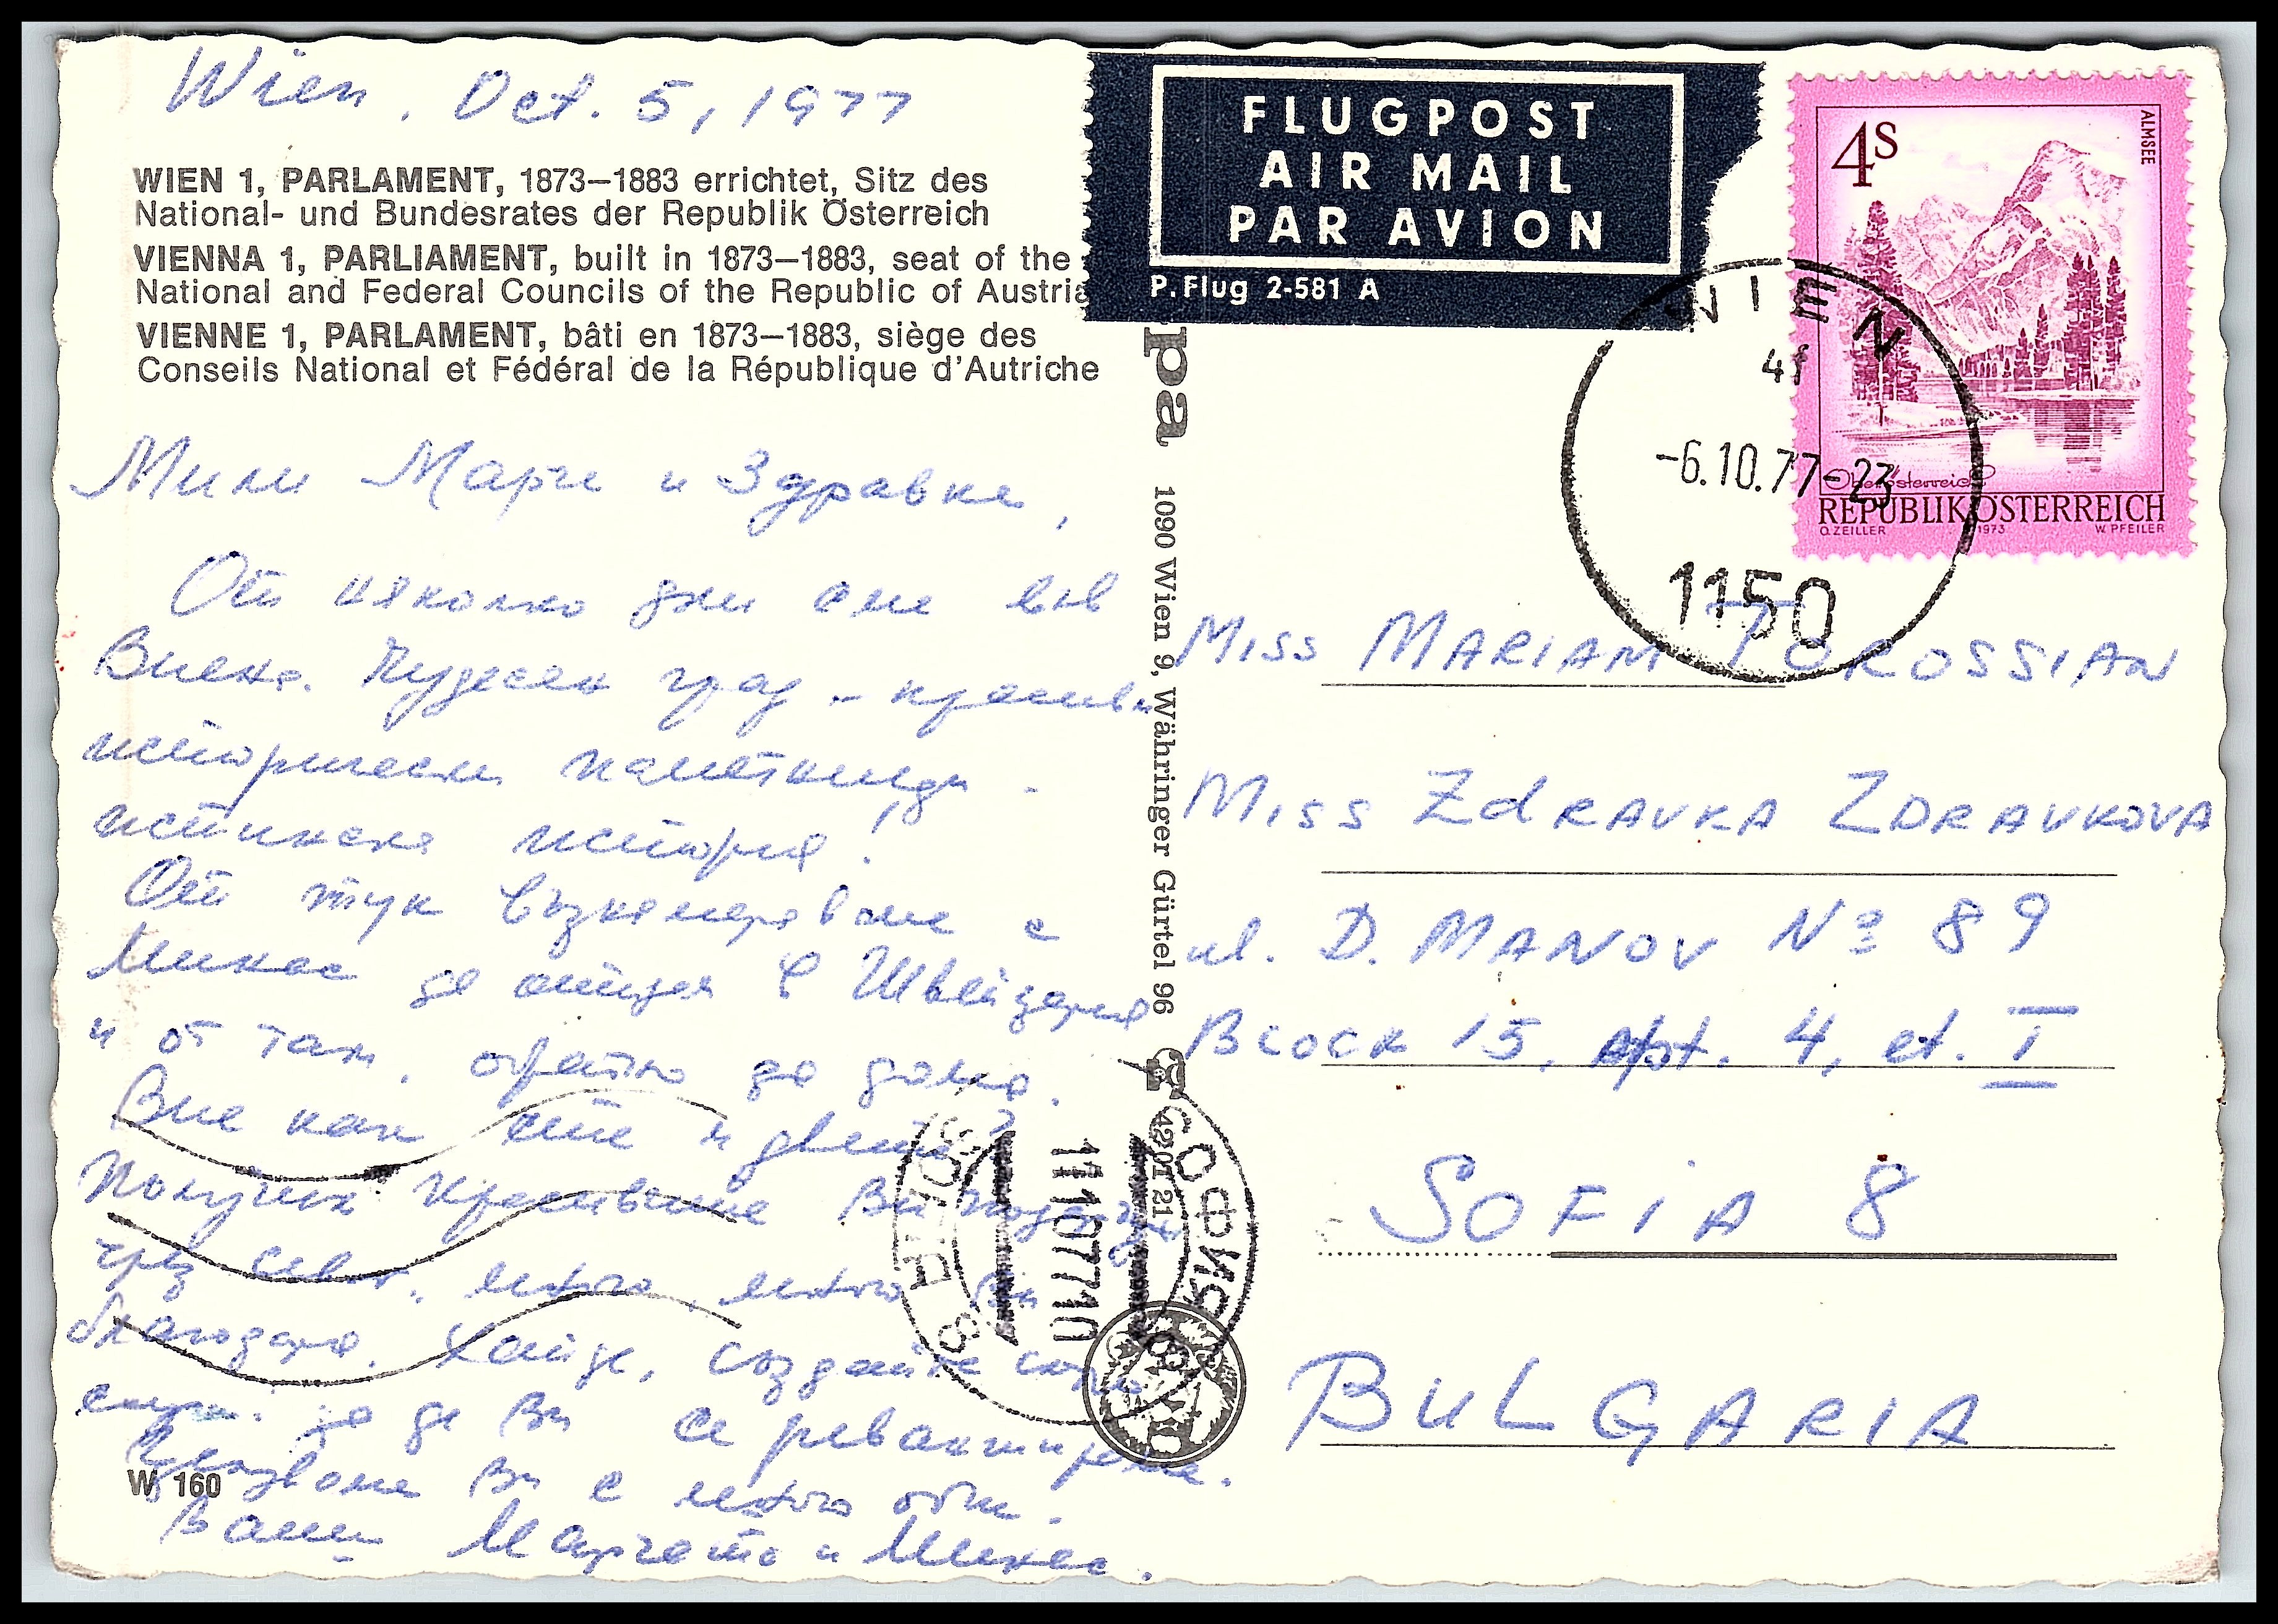 Wien, Oct. 5, 1977
WIEN 1, PARLAMENT, 1873–1883 errichtet, Sitz des
National- und Bundesrates der Republik Österreich
VIENNA 1, PARLIAMENT, built in 1873–1883, seat of the
National and Federal Councils of the Republic of Austria
VIENNE 1, PARLAMENT, bâti en 1873–1883, siège des
Conseils National et Fédéral de la République d'Autriche
Мили Марги и Здравке,
От няколко дни сме във
Виена. Чудесен град – красиви
исторически паметници.
истинска история!
От тук възнамеряваме с
Микас да отидем в Швейцария
и от там, обратно до дома.
Вие как сте и двете?
Получих красивите Ви подаръци
чрез много, много Ви
благодаря. Хайде, създайте
за да Ви се реванширame.
Ви с много обич.
Ваши и Микас.
W 160
FLUGPOST
AIR MAIL
PAR AVION
P. Flug 2-581 A
pa
1090 Wien 9, Währinger Gürtel 96
42 01 21
4S
ALMSEE
Oberösterreich
REPUBLIK ÖSTERREICH
O. ZEILLER 1973 W. PFEILER
WIEN
-6.10.77-23
1150
MISS MARIAM TOROSSIAN
MISS ZdRAVKA ZDRAVKOVA
ul. D. MANOV № 89
BLOCK 15, Apt. 4, et. I
SOFIA 8
BULGARIA
СОФИЯ
11107710